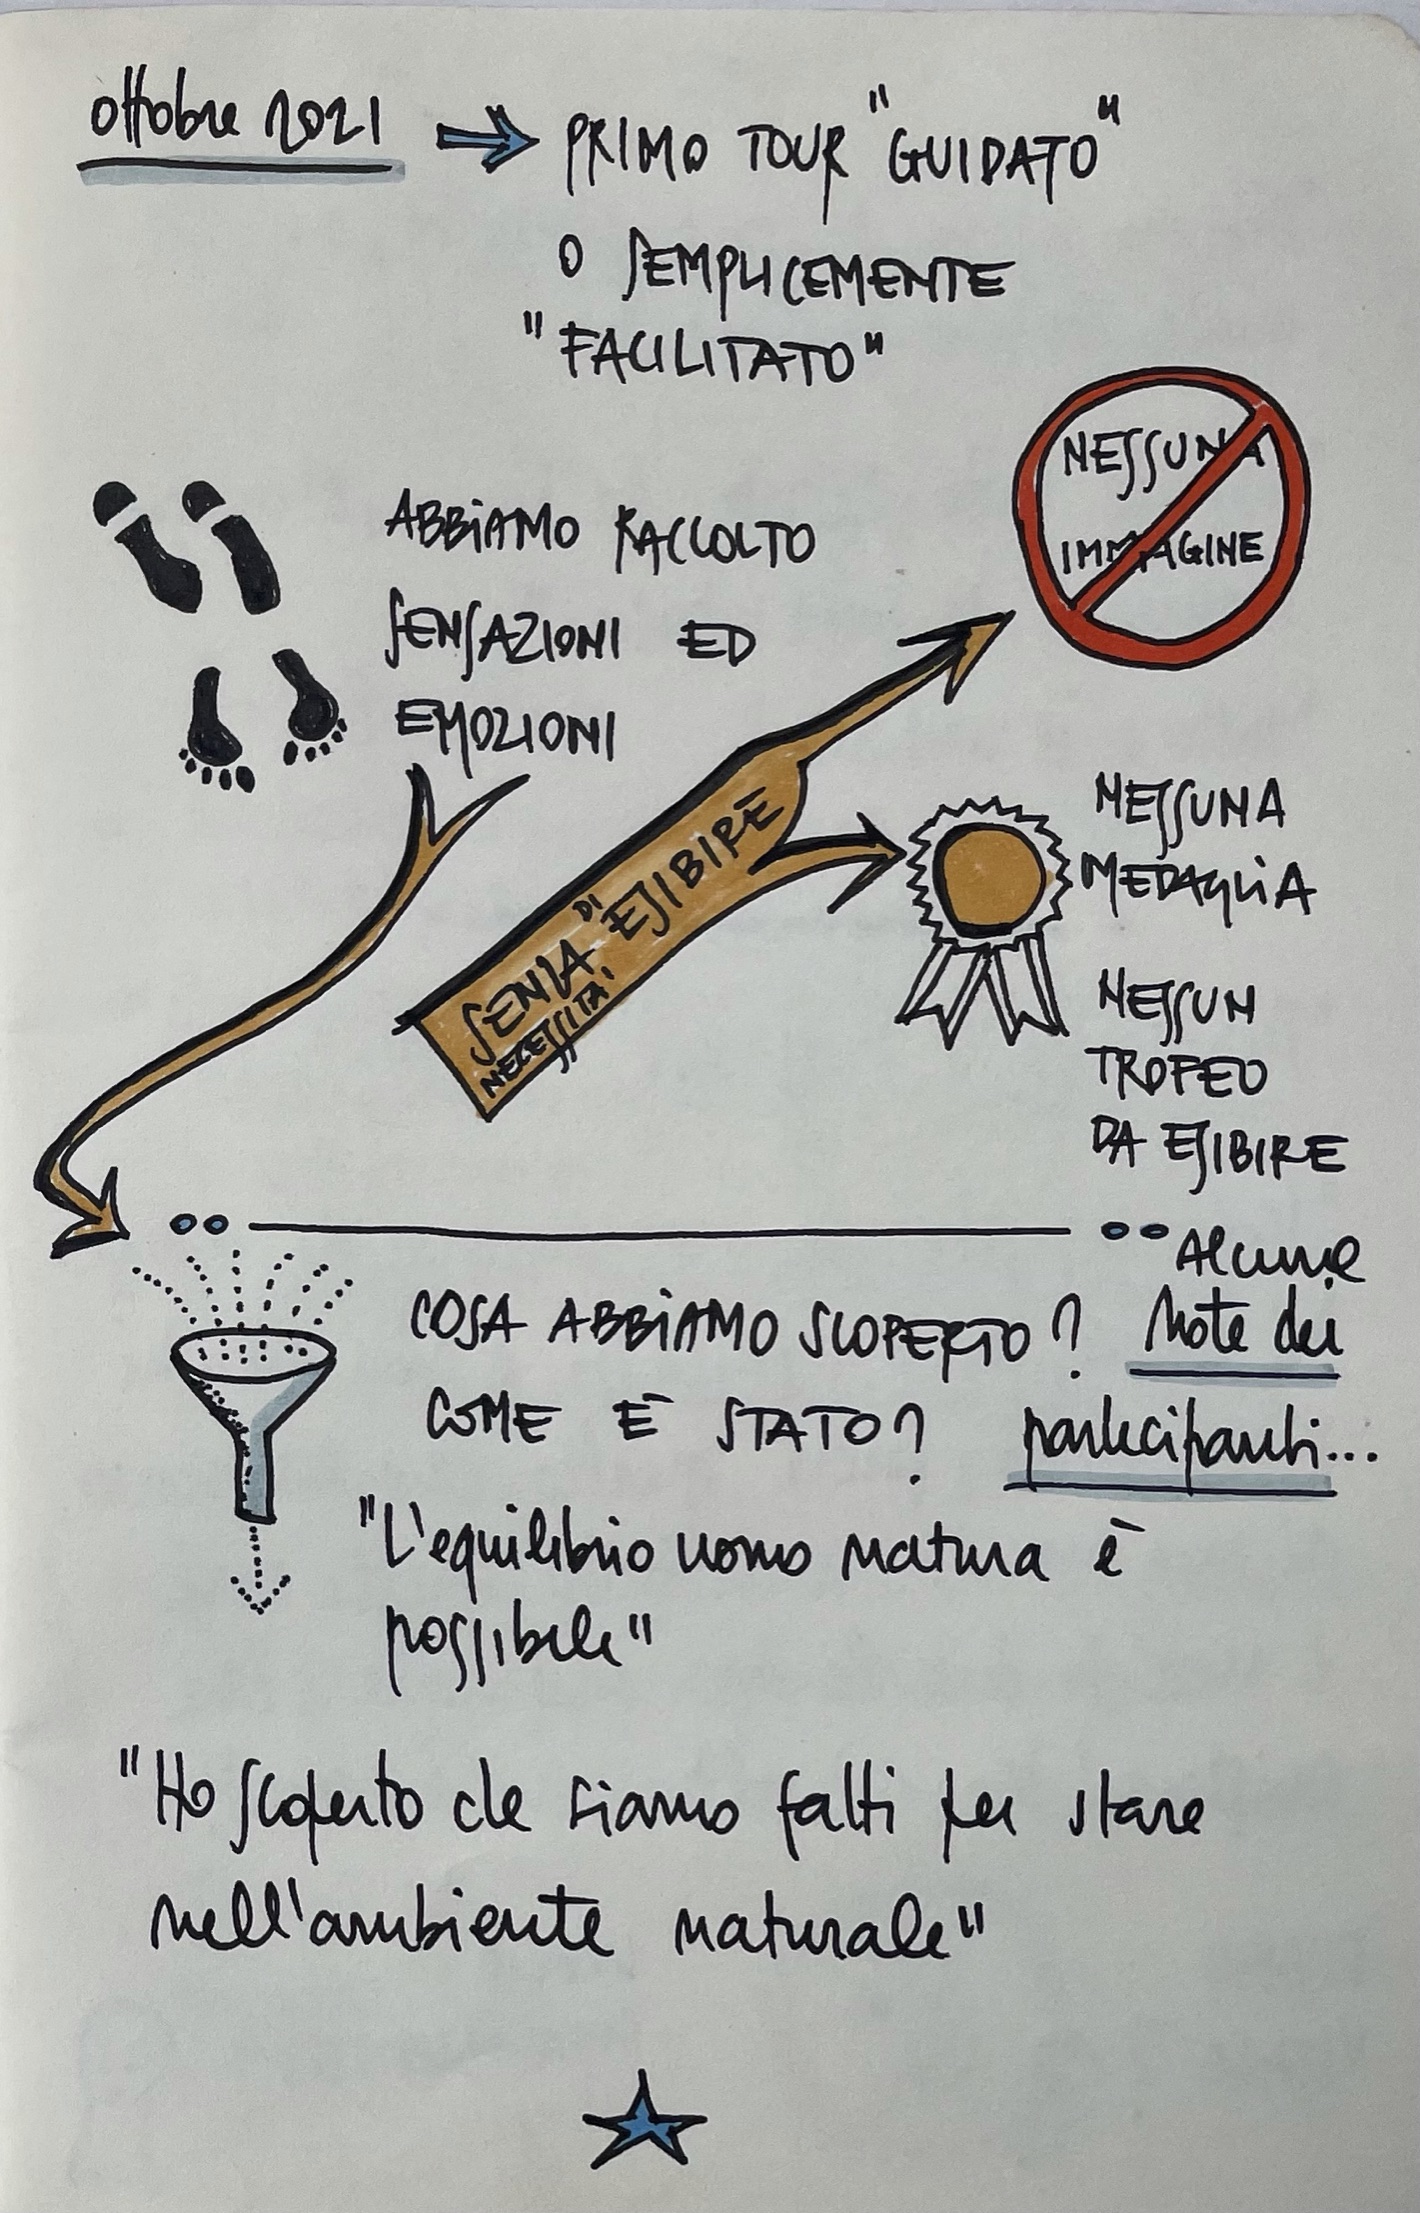 ottobre 2021
PRIMO TOUR "GUIDATO"
O SEMPLICEMENTE
"FACILITATO"
NESSUNA
IMMAGINE
ABBiAMO RACCOLTO
SENSAZIONI ED
EMOZIONI
SENZA DI ESIBIRE
NECESSITA'
NESSUNA
MEDAGLiA
NESSUN
TROFEO
DA ESIBIRE
Alcune
COSA ABBiAMO SCOPERTO? Note dei
COME È STATO? partecipanti...
"L'equilibrio uomo natura è
possibile"
"Ho scoperto che siamo fatti per stare
nell'ambiente naturale"